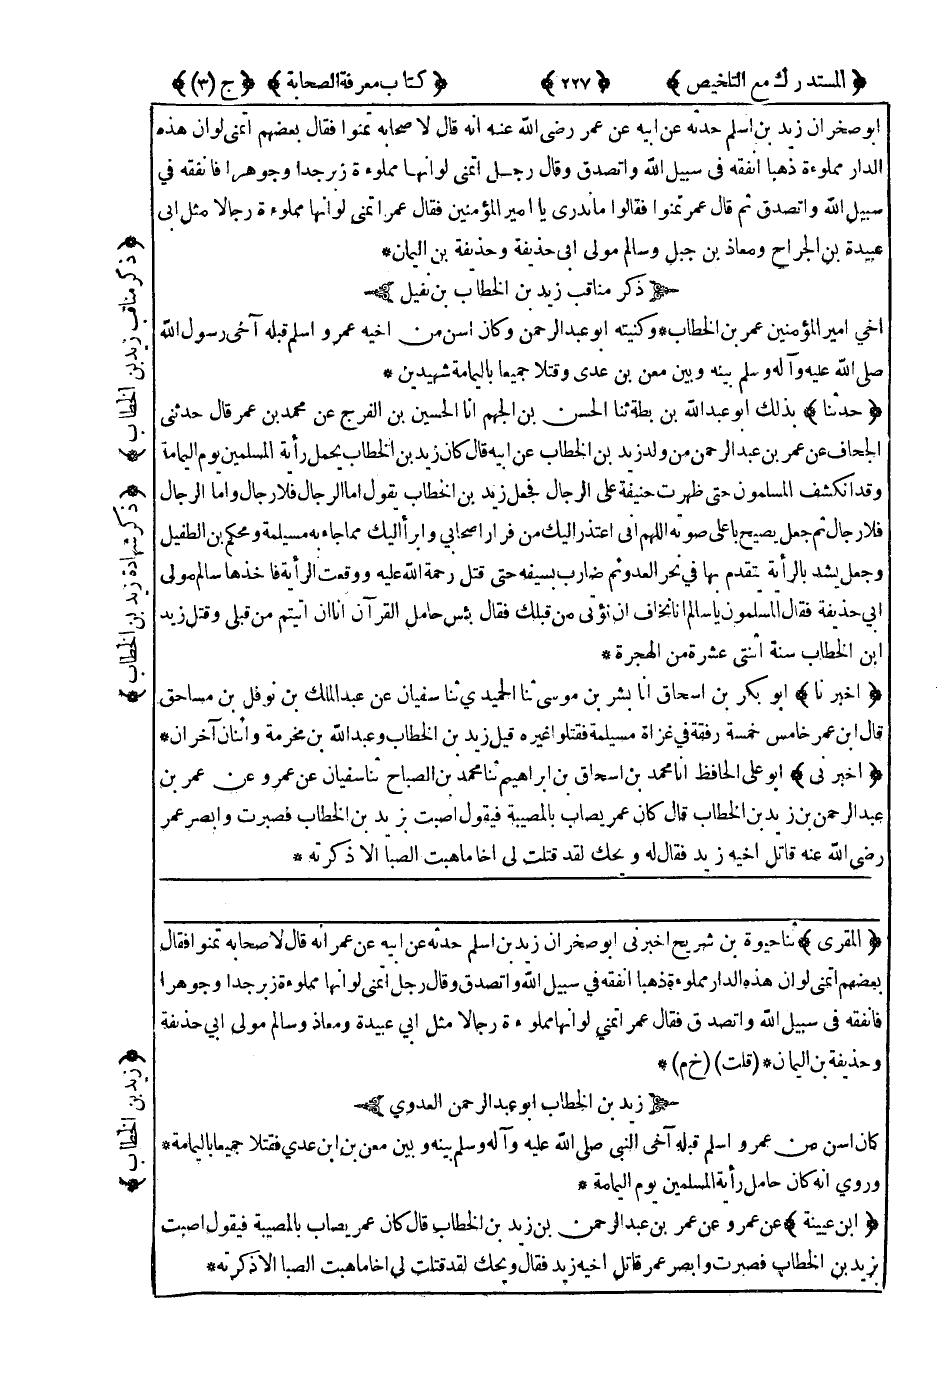 ﴿ المستدرك مع التلخيص ﴾ ﴿ ٢٢٧ ﴾ ﴿ كتاب معرفة الصحابة ﴾ ﴿ ج (٣) ﴾
ابو صخر ان زيد بن اسلم حدثه عن ابيه عن عمر رضى الله عنه انه قال لاصحابه تمنوا فقال بعضهم اتمنى لو ان هذه
الدار مملوءة ذهبا انفقه فى سبيل الله واتصدق وقال رجل اتمنى لو انها مملوءة زبرجدا وجوهرا فانفقه في
سبيل الله واتصدق ثم قال عمر تمنوا فقالوا ماندرى يا امير المؤمنين فقال عمر اتمنى لو انها مملوءة رجالا مثل ابى
عبيدة بن الجراح ومعاذ بن جبل وسالم مولى ابى حذيفة وحذيفة بن اليمان*
ذكر مناقب زيد بن الخطاب بن نفيل
اخي امير المؤمنين عمر بن الخطاب*وكنيته ابو عبد الرحمن وكان اسن من اخيه عمر و اسلم قبله آخى رسول الله
صلى الله عليه وآله وسلم بينه وبين معن بن عدى وقتلا جميعا باليمامة شهيدين *
﴿ حدثنا ﴾ بذلك ابو عبد الله بن بطة ثنا الحسن بن الجهم انا الحسين بن الفرج عن محمد بن عمر قال حدثنى
الجحاف عن عمر بن عبد الرحمن من ولد زيد بن الخطاب عن ابيه قال كان زيد بن الخطاب يحمل رأية المسلمين يوم اليمامة
وقد انكشف المسلمون حتى ظهرت حنيفة على الرجال فجعل زيد بن الخطاب يقول اما الرجال فلا رجال واما الرجال
فلا رجال ثم جعل يصيح باعلى صوته اللهم انى اعتذر اليك من فرار اصحابي و ابرأ اليك مما جاء به مسيلمة ومحكم بن الطفيل
وجعل يشد بالرأية يتقدم بها في نحر العدو ثم ضارب بسيفه حتى قتل رحمة الله عليه ووقعت الرأية فاخذها سالم مولى
ابي حذيفة فقال المسلمون ياسالم انا نخاف ان نؤتى من قبلك فقال بئس حامل القرآن انا ان اتيتم من قبلى وقتل زيد
ابن الخطاب سنة اثنتى عشرة من الهجرة *
﴿ اخبرنا ﴾ ابو بكر بن اسحاق انا بشر بن موسى ثنا الحميدي ثنا سفيان عن عبد الملك بن نوفل بن مساحق
قال ابن عمر خامس خمسة رفقة في غزاة مسيلمة فقتلوا غيره قيل زيد بن الخطاب وعبد الله بن مخرمة واثنان آخران*
﴿ اخبرنى ﴾ ابو على الحافظ انا محمد بن اسحاق بن ابراهيم ثنا محمد بن الصباح ثنا سفيان عن عمرو عن عمر بن
عبد الرحمن بن زيد بن الخطاب قال كان عمر يصاب بالمصيبة فيقول اصبت بزيد بن الخطاب فصبرت و ابصر عمر
رضى الله عنه قاتل اخيه زيد فقال له ويحك لقد قتلت لى اخا ماهبت الصبا الا ذكرته *
﴿ المقرى ﴾ ثنا حيوة بن شريح اخبرنى ابو صخر ان زيد بن اسلم حدثه عن ابيه عن عمر انه قال لاصحابه تمنوا فقال
بعضهم اتمنى لو ان هذه الدار مملوءة ذهبا انفقه في سبيل الله واتصدق وقال رجل اتمنى لو انها مملوءة زبرجدا وجوهرا
فانفقه فى سبيل الله واتصدق فقال عمر اتمني لو انها مملوءة رجالا مثل ابي عبيدة ومعاذ وسالم مولى ابي حذيفة
وحذيفة بن اليمان* (قلت) (خ م) *
زيد بن الخطاب ابو عبد الرحمن العدوي
كان اسن من عمر و اسلم قبله آخى النبي صلى الله عليه وآله وسلم بينه وبين معن بن ابن عدي فقتلا جميعا باليمامة*
وروي انه كان حامل رأية المسلمين يوم اليمامة *
﴿ ابن عيينة ﴾ عن عمرو عن عمر بن عبد الرحمن بن زيد بن الخطاب قال كان عمر يصاب بالمصيبة فيقول اصبت
بزيد بن الخطاب فصبرت وابصر عمر قاتل اخيه زيد فقال ويحك لقد قتلت لى اخا ماهبت الصبا الا ذكرته*
﴿ ذكر مناقب زيد بن الخطاب ﴾
﴿ ذكر شهادة زيد بن الخطاب ﴾
﴿ زيد بن الخطاب ﴾